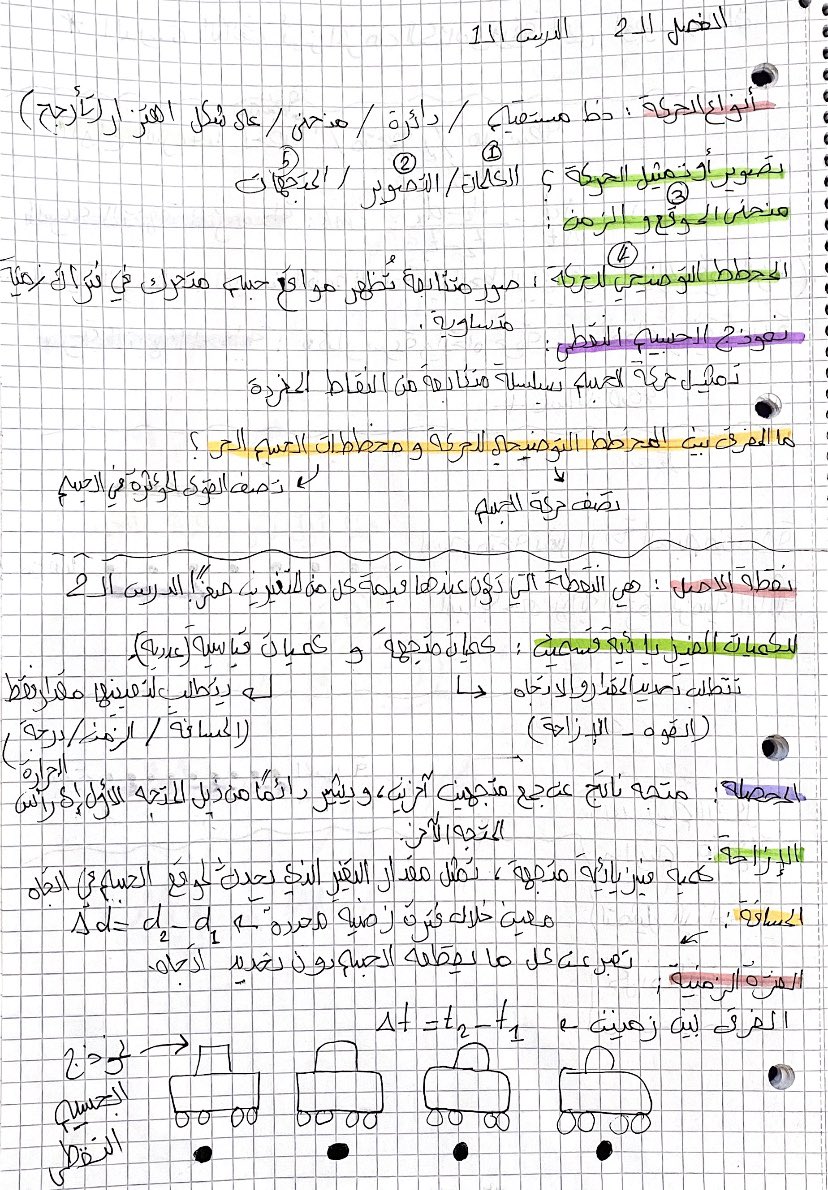 الفصل الـ 2 الدرس الـ 1
أنواع الحركة : خط مستقيم / دائرة / منحنى / على شكل اهتزاز (تأرجح)
تصوير أو تمثيل الحركة ؟ ① الكلمات / ② التصوير / ⑤ المتجهات
③ منحنى الموقع و الزمن :
④ المخطط التوضيحي للحركة : صور متتابعة تُظهر مواقع جسم متحرك في فترات زمنية
متساوية .
نموذج الجسيم النقطي :
تمثيل حركة الجسم بسلسلة متتابعة من النقاط المفردة
ما الفرق بين المخطط التوضيحي للحركة و مخططات الجسم الحر ؟
تصف القوى المؤثرة في الجسم
تصف حركة الجسم
نقطة الأصل : هي النقطة التي تكون عندها قيمة كل من المتغيرين صفرًا الدرس الـ 2
للكميات الفيزيائية قسمين : كميات متجهة و كميات قياسية (عددية).
تتطلب تحديد المقدار والاتجاه
يتطلب لتعيينها مقدار فقط
(القوه - الإزاحة)
(المسافة / الزمن / درجة
الحرارة)
المحصلة : متجه ناتج عن جمع متجهين آخرين، ويشير دائمًا من ذيل المتجه الأول إلى رأس
المتجه الآخر.
الإزاحة : كمية فيزيائية متجهة ، تمثل مقدار التغير الذي يحدث لموقع الجسم في اتجاه
معين خلال فترة زمنية محددة Δd = d₂ - d₁
المسافة :
تعبر عن كل ما يقطعه الجسم بدون تحديد اتجاه.
الفترة الزمنية :
الفرق بين زمنين Δt = t₂ - t₁
نموذج
الجسيم
النقطي